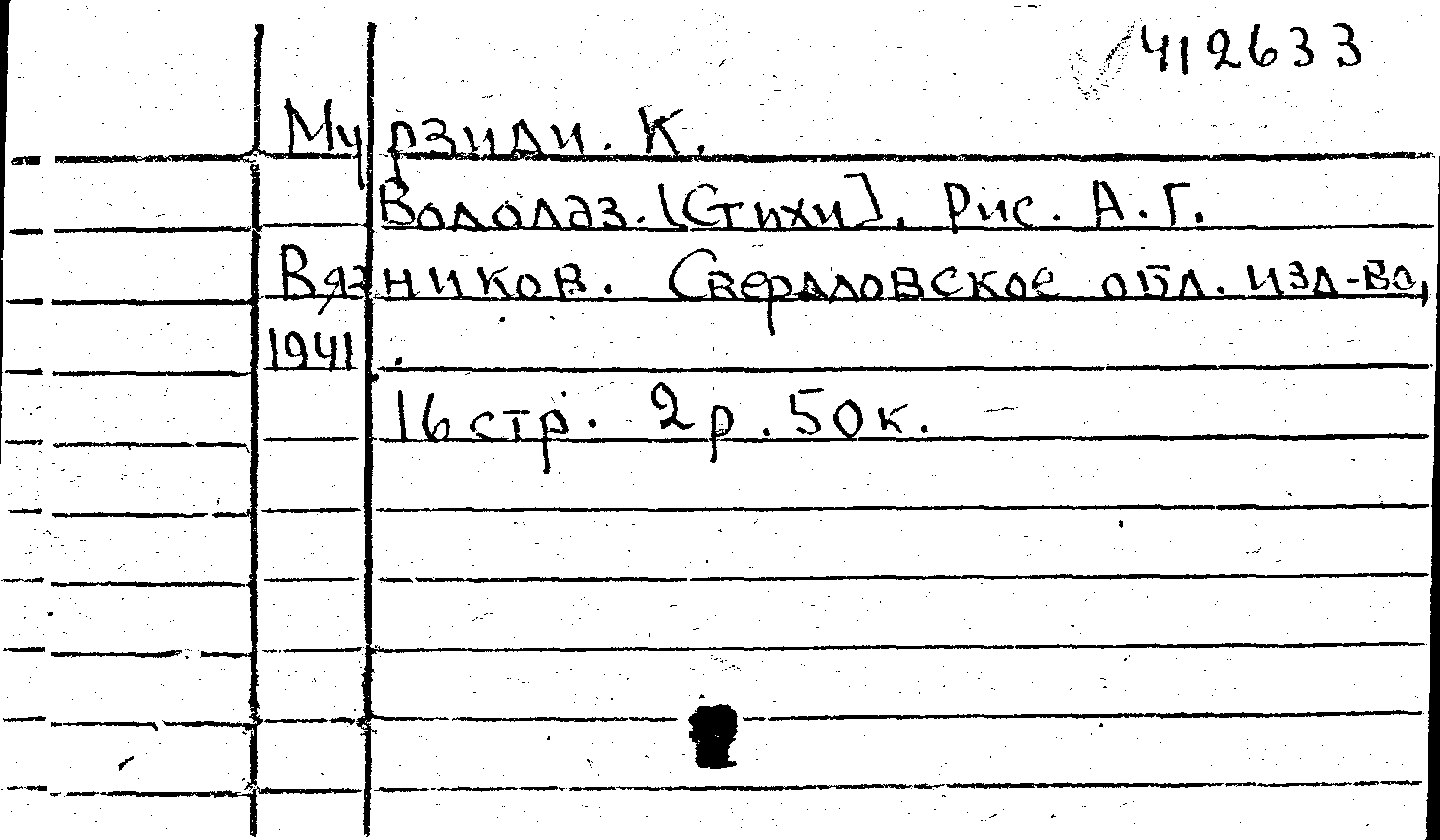 412633
Мурзиди. К.
Водолаз. [Стихи]. Рис. А. Г.
Вязников. Свердловское обл. изд-во,
1941.
16 стр. 2 р. 50 к.